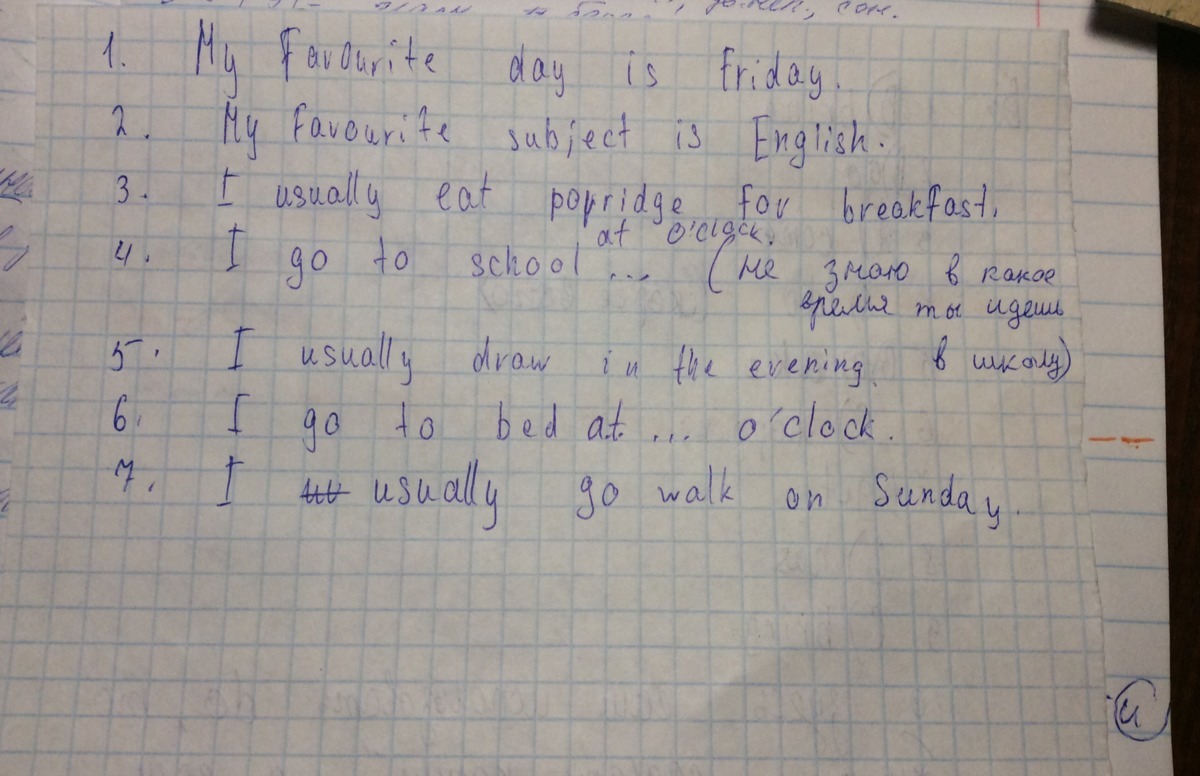 1. My Favourite day is Friday.
2. My Favourite subject is English.
3. I usually eat popridge for breakfast.
at o'clock.
4. I go to school ... (не знаю в какое
время ты идешь
5. I usually draw in the evening. в школу)
6. I go to bed at ... o'clock.
7. I usually go walk on Sunday.